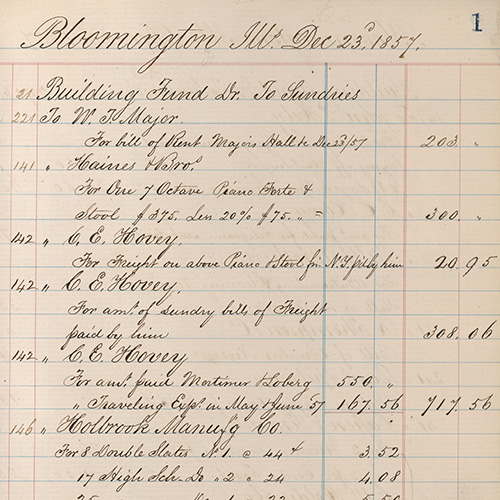 1
Bloomington Ills Dec 23d 1857.
21 Building Fund Dr. To Sundries
221 To W. T. Major.
For bill of Rent Majors Hall to Dec 23/57 203. "
141 " Haines & Bros.
For One 7 Octave Piano Forte &
Stool $375. Less 20% $75. " = 300. "
142 " C. E. Hovey.
For Freight on above Piano & Stool fm N.Y. pd by him 20.95
142 " C. E. Hovey,
For amt. of sundry bills of Freight
paid by him 308.06
142 " C. E. Hovey
For amt. paid Mortimer & Loberg 550. "
" Traveling Exps. in May & June 57 167.56 717.56
146 " Holbrook Manufg Co.
For 8 Double Slates No. 1. @ 44¢ 3.52
17 High Sch. Do " 2 " 24 4.08